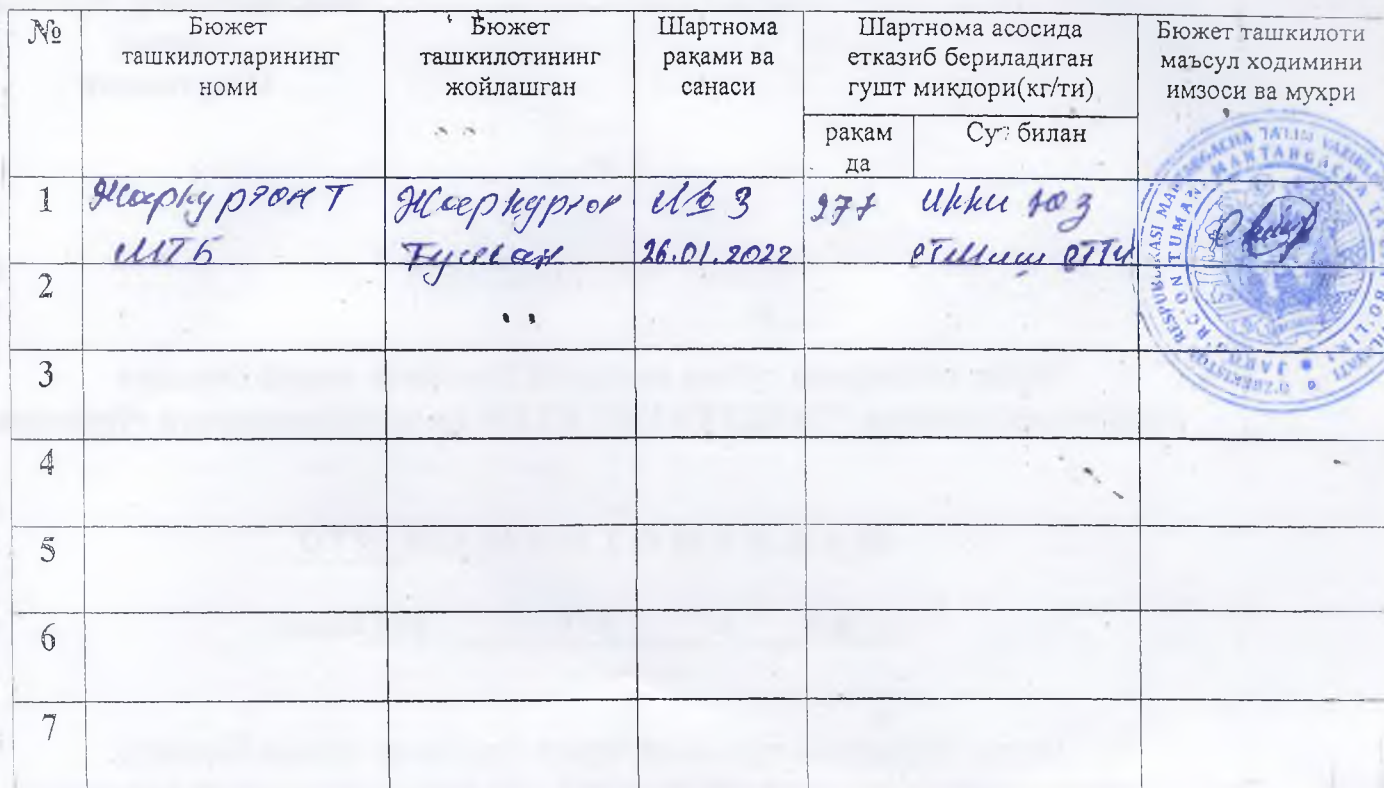 №
Бюжет
ташкилотларининг
номи
Бюжет
ташкилотининг
жойлашган
Шартнома
рақами ва
санаси
Шартнома асосида
етказиб бериладиган
гушт миқдори(кг/ти)
рақам
да
билан
Бюжет ташкилоти
маъсул ходимини
имзоси ва мухри
1
Жаркургон Т
МТБ
Жаркургон
Туман
№ 3
26.01.2022
277
икки юз
етмиш етти
2
3
4
5
6
7